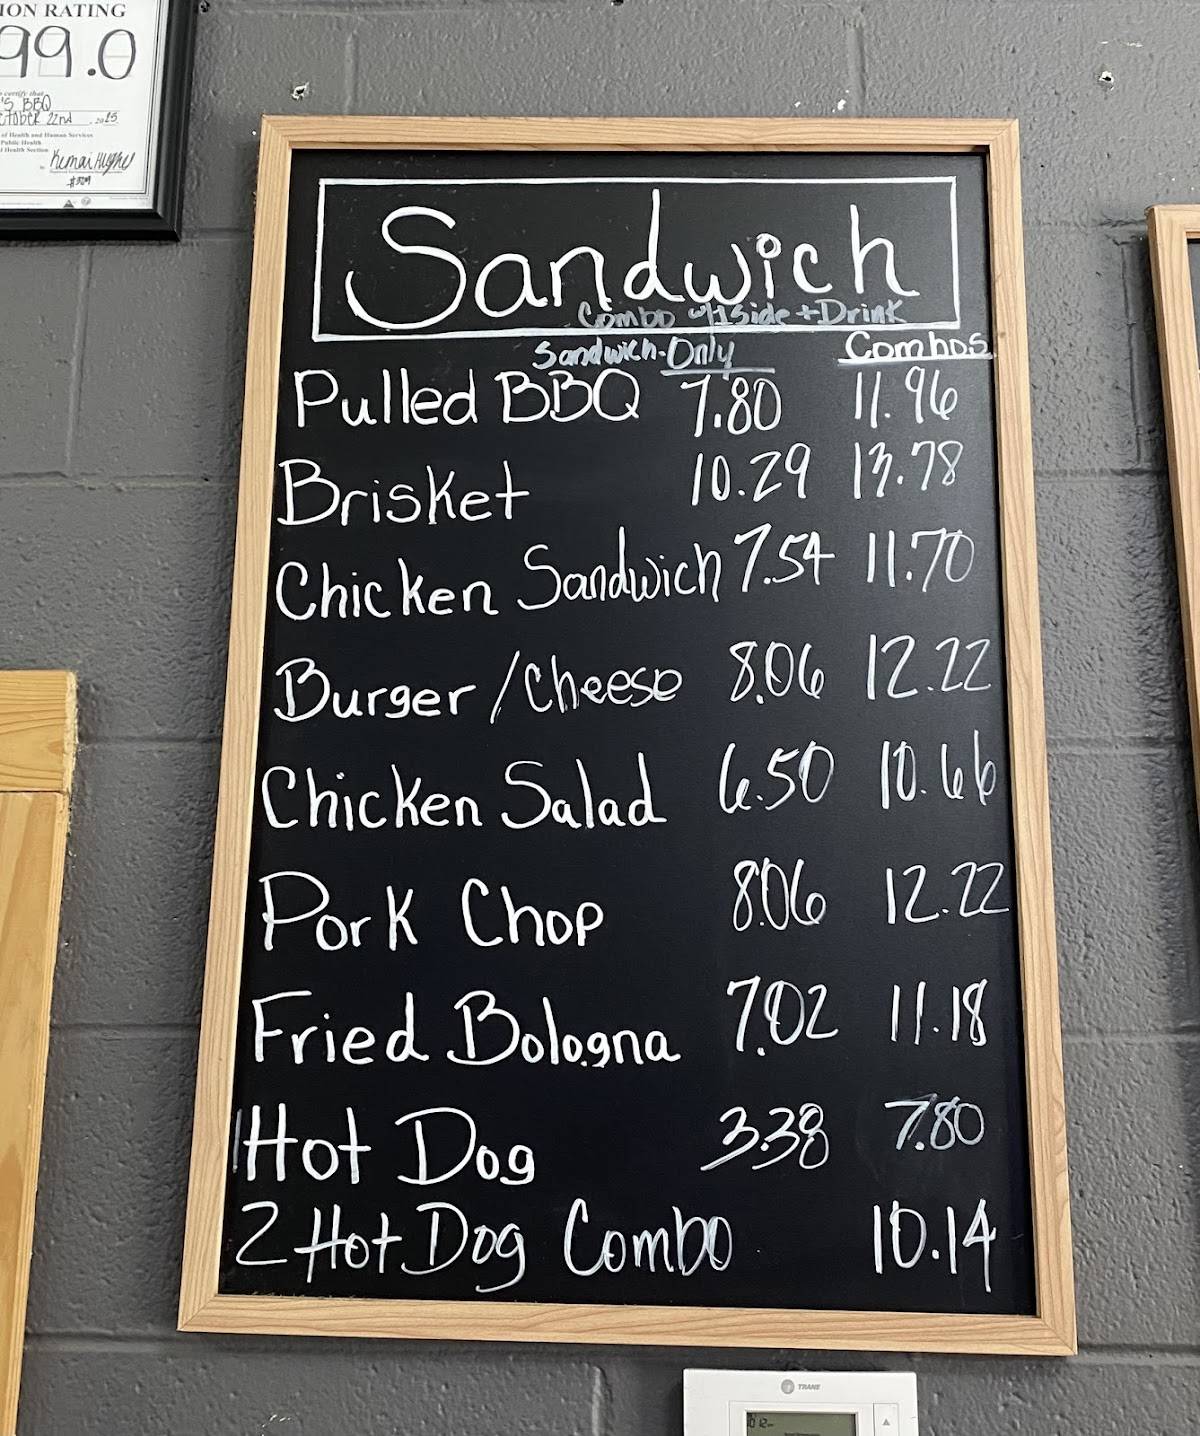 ION RATING
99.0
's BBQ
October 22nd, 2015
of Health and Human Services
Public Health
Health Section
Sandwich
Combo w/1 side + Drink
Sandwich-Only Combos
Pulled BBQ 7.80 11.96
Brisket 10.29 13.78
Chicken Sandwich 7.54 11.70
Burger/Cheese 8.06 12.22
Chicken Salad 6.50 10.66
Pork Chop 8.06 12.22
Fried Bologna 7.02 11.18
Hot Dog 3.38 7.80
2 Hot Dog Combo 10.14
TRANE